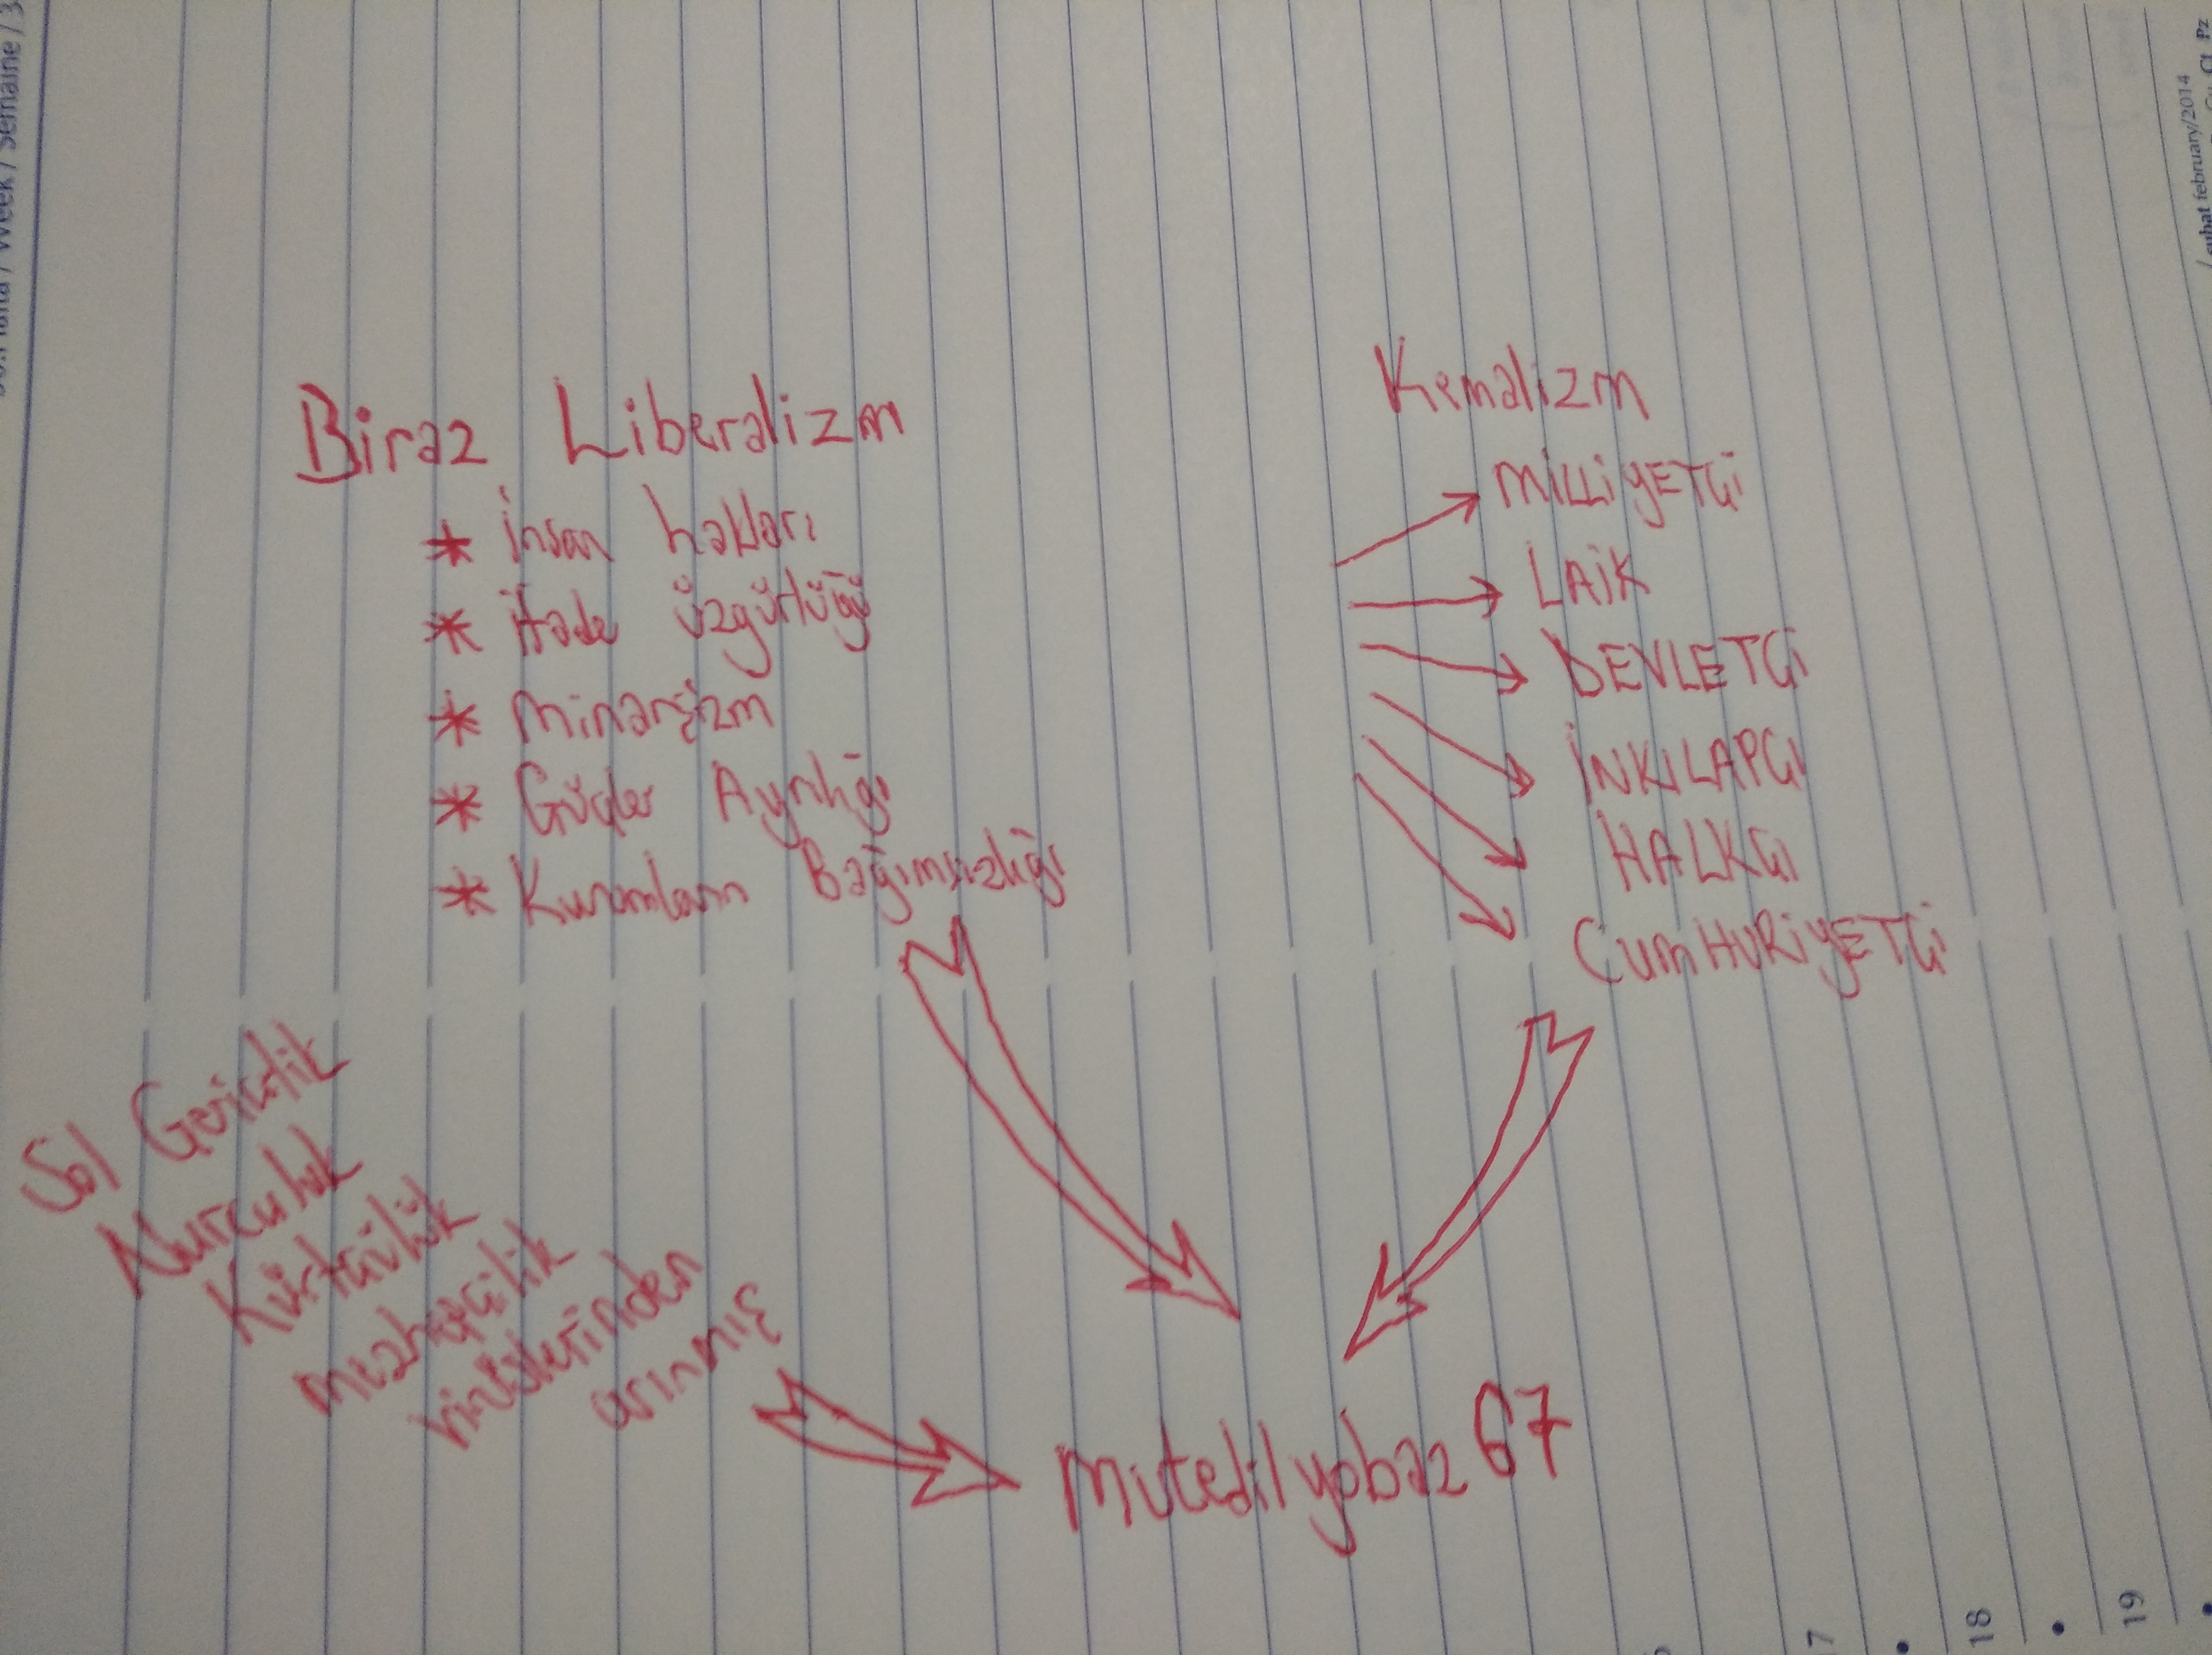 Biraz Liberalizm
* İnsan hakları
* İfade özgürlüğü
* minarşizm
* Güçler Ayrılığı
* Kurumların Bağımsızlığı
Kemalizm
MİLLİYETÇİ
LAİK
DEVLETÇİ
İNKILAPÇI
HALKÇI
CUMHURİYETÇİ
Sol Gericilik
Nurculuk
Kürtçülük
mezhepçilik
virüslerinden
arınmış
mutedilyobaz67
/ Week / Semaine / 3
/ şubat february/2014
Ct Pz
7
18
19